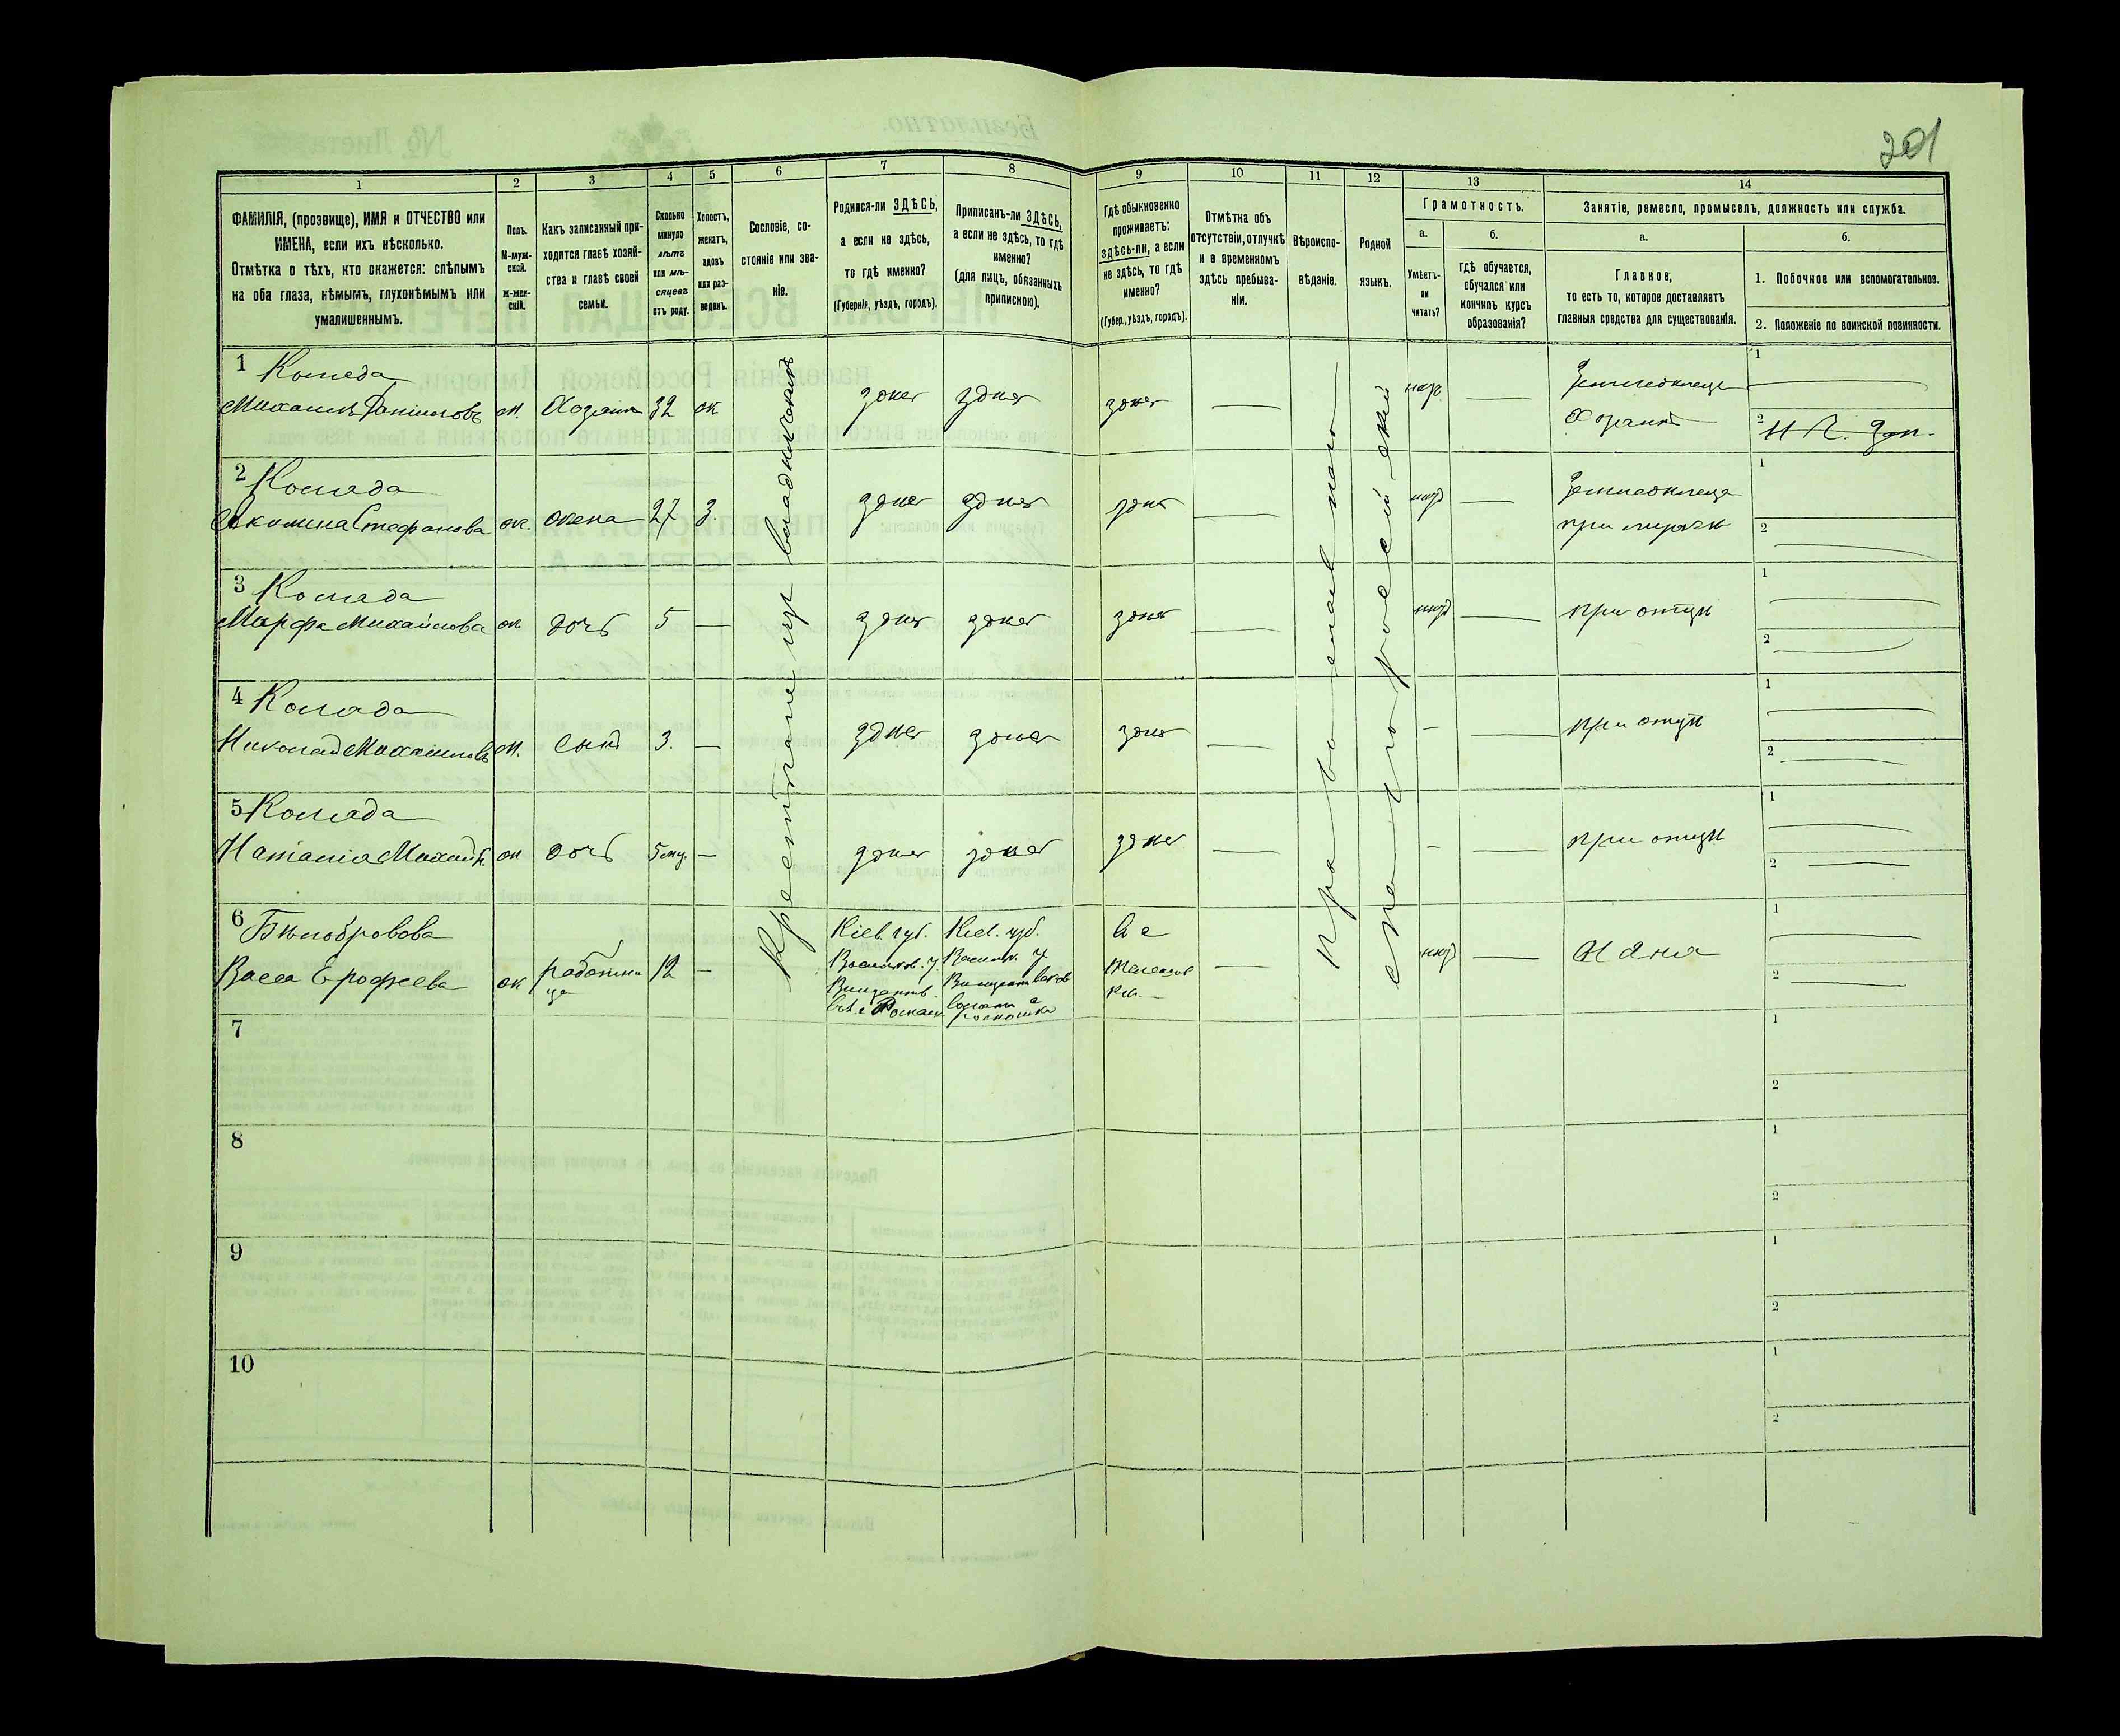 201
1
2
3
4
5
6
7
8
9
10
11
12
13
14
ФАМИЛІЯ, (прозвище), ИМЯ и ОТЧЕСТВО или
ИМЕНА, если ихъ нѣсколько.
Отмѣтка о тѣхъ, кто окажется: слѣпымъ
на оба глаза, нѣмымъ, глухонѣмымъ или
умалишеннымъ.
Полъ.
М-муж-
ской.
Ж-жен-
скій.
Какъ записанный при-
ходится главѣ хозяй-
ства и главѣ своей
семьи.
Сколько
минуло
лѣтъ
или мѣ-
сяцевъ
отъ роду.
Холостъ,
женатъ,
вдовъ
или раз-
веденъ.
Сословіе, со-
стояніе или зва-
ніе.
Родился-ли ЗДѢСЬ,
а если не здѣсь,
то гдѣ именно?
(Губернія, уѣздъ, городъ).
Приписанъ-ли ЗДѢСЬ,
а если не здѣсь, то гдѣ
именно?
(для лицъ, обязанныхъ
припискою).
Гдѣ обыкновенно
проживаетъ:
здѣсь-ли, а если
не здѣсь, то гдѣ
именно?
(Губер., уѣздъ, городъ).
Отмѣтка объ
отсутствіи, отлучкѣ
и о временномъ
здѣсь пребыва-
ніи.
Вѣроиспо-
вѣданіе.
Родной
языкъ.
Грамотность.
а.
Умѣетъ-
ли
читать?
б.
гдѣ обучается,
обучался или
кончилъ курсъ
образованія?
Занятіе, ремесло, промыселъ, должность или служба.
а.
Главное,
то есть то, которое доставляетъ
главныя средства для существованія.
б.
1. Побочное или вспомогательное.
2. Положеніе по воинской повинности.
Крестьянинъ
православнаго
малороссійскій
1
Коляда
Михаилъ
м.
Хозяинъ
32
ж
здѣсь
здѣсь
здѣсь
нѣтъ
Земледѣлецъ
Хозяинъ
1
2
2
Коляда
Стефанова
ж.
жена
27
З.
здѣсь
здѣсь
здѣсь
нѣтъ
Земледѣлецъ
при мужѣ
1
2
3
Коляда
Марфа Михайлова
ж
дочь
5
здѣсь
здѣсь
здѣсь
нѣтъ
при отцѣ
1
2
4
Коляда
Николай Михаиловъ
м.
сынъ
3.
здѣсь
здѣсь
здѣсь
при отцѣ
1
2
5
Коляда
Наталія Михайл.
ж
дочь
5 мц.
здѣсь
здѣсь
здѣсь
при отцѣ
1
2
6
Бѣлобровова
Васса Ерофеева
ж
работни
ца
12
Кіев. губ.
Васильков. у.
Кіев. губ.
Васильк. у.
нѣтъ
Няня
1
2
7
1
2
8
1
2
9
1
2
10
1
2